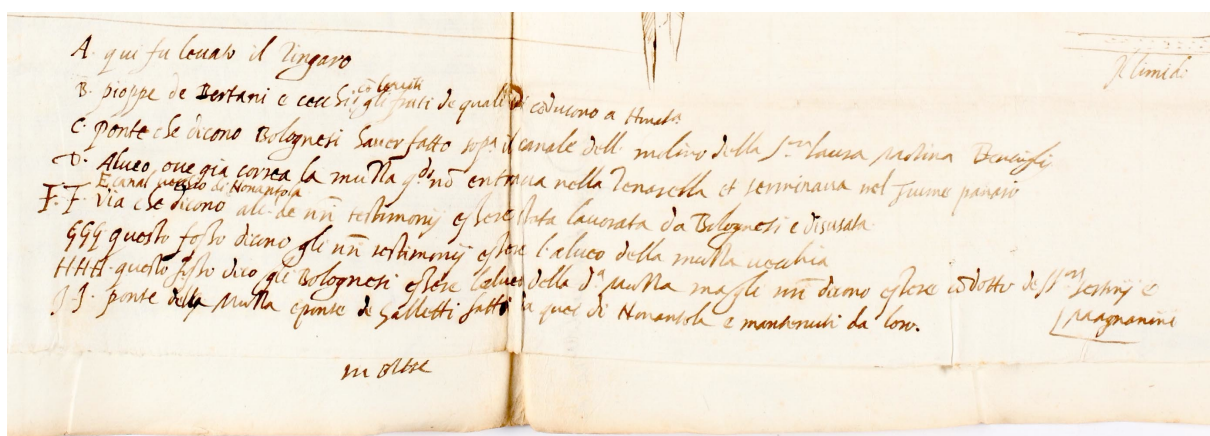 A. qui fu leuato il Zingaro
Il limidi
B. pioppe de Bertani e cecchi cō leuiti gli fruti de quali si cōducono a Honat.a
C. Ponte che dicono Bolognesi hauer fatto sop.a il canale dell. molino della s.ra laura
D. Alueo, oue già correa la muzza q.do nō entraua nella Zenarella et terminaua nel fiume panaro
E. canal uecchio di Honantola
F. F. Via che dicono alc. de nr̄i testimonij essere stata lauorata da Bolognesi e disusata
GGG questo fosso dicono gli nr̄i testimonij essere l'alueo della muzza uecchia
HHH. questo fosso dico gli Bolognesi essere l'alueo della d.a Muzza ma gli nr̄i dicono essere cōdotto de ss.ri e
Magnanini
J. J. ponte della Muzza e ponte de Galletti fatti da quei di Honantola e mantenuti da loro.
in oltre